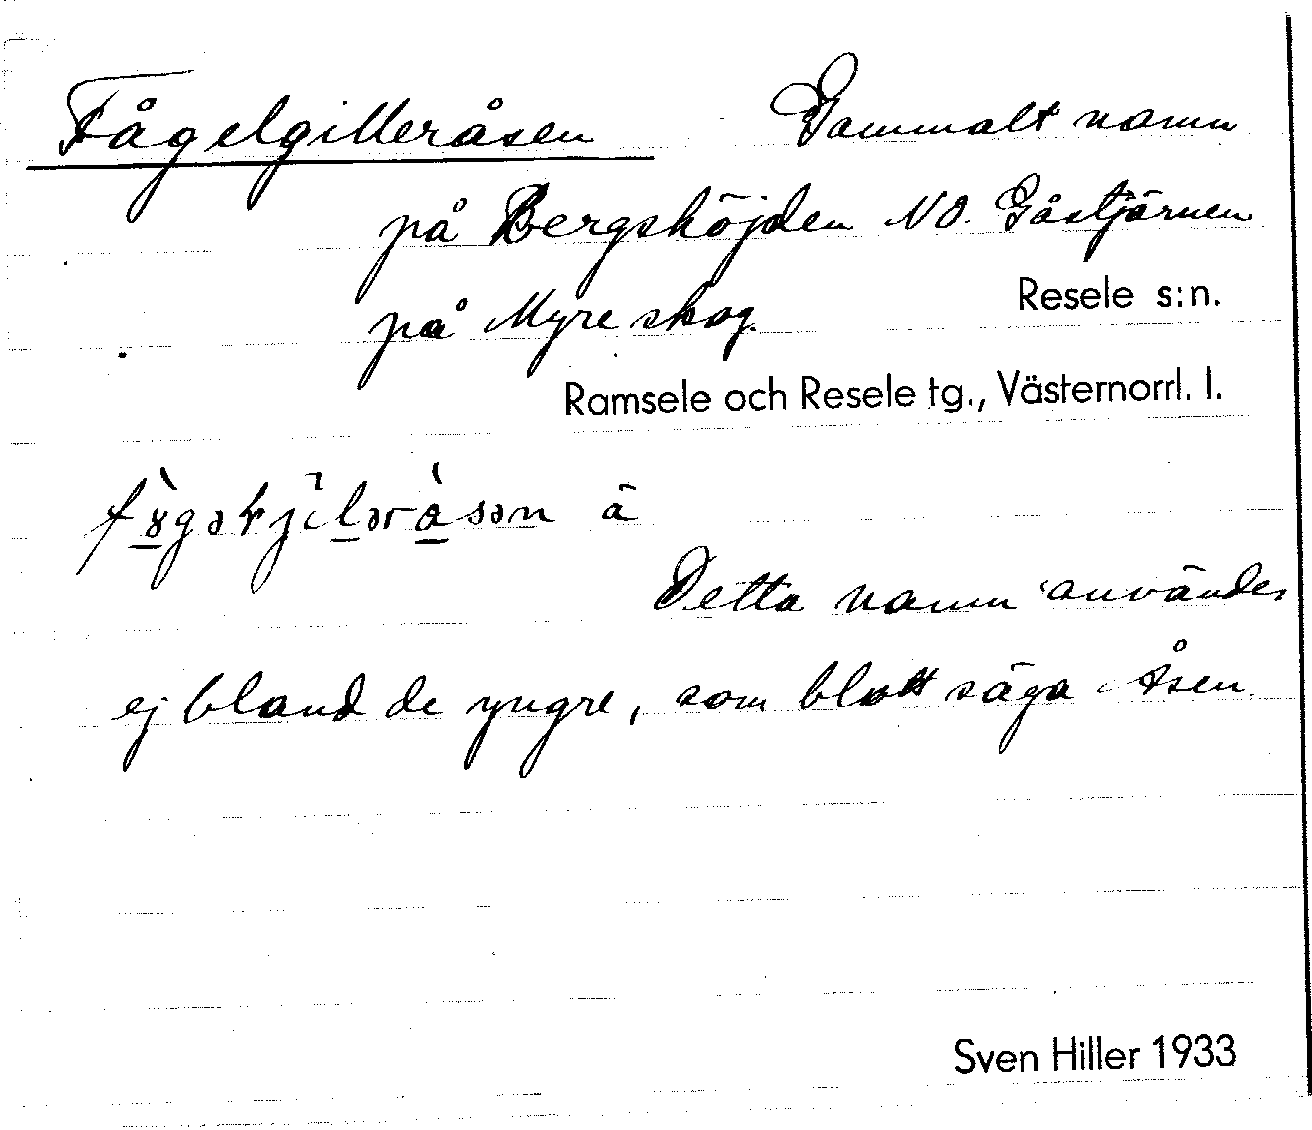 Fågelgilleråsen Gammalt namn
på Bergshöjden NO. Gåstjärnen
på Myre skog.
Resele s:n.
Ramsele och Resele tg., Västernorrl. l.
ä
Detta namn användes
ej bland de yngre, som blott säga Åsen.
Sven Hiller 1933